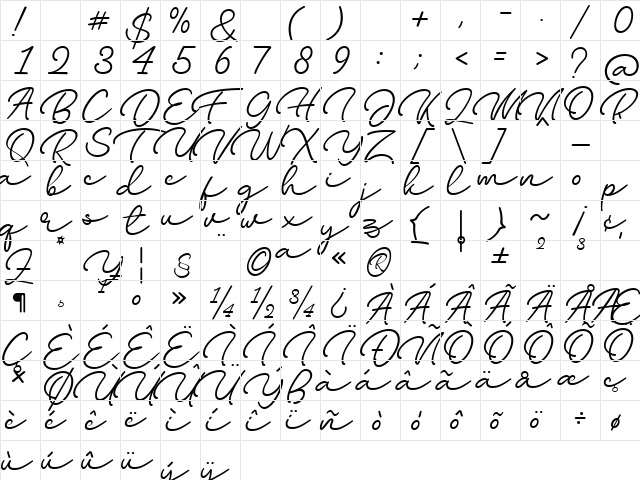 ! # $ % & ( ) + , - . / 0
1 2 3 4 5 6 7 8 9 : ; < = > ? @
A B C D E F G H I J K L M N O P
Q R S T U V W X Y Z [ \ ] ^ _
a b c d e f g h i j k l m n o p
q r s t u v w x y z { | } ~ ¡ ¢
£ ¤ ¥ ¦ § ¨ © ª « ® ¯ ° ± ² ³
¶ ¸ ¹ º » ¼ ½ ¾ ¿ À Á Â Ã Ä Å Æ
Ç È É Ê Ë Ì Í Î Ï Ð Ñ Ò Ó Ô Õ Ö
× Ø Ù Ú Û Ü Ý ß à á â ã ä å æ ç
è é ê ë ì í î ï ñ ò ó ô õ ö ÷ ø
ù ú û ü ý ÿ